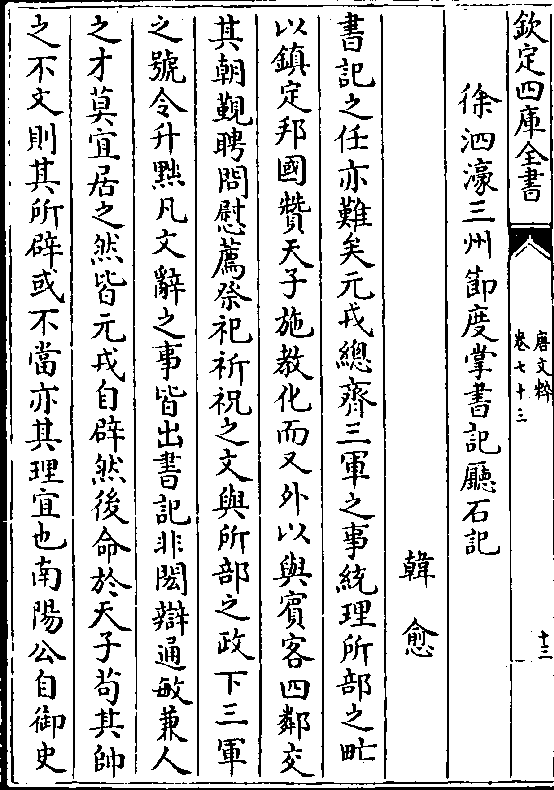 欽定四庫全書
唐文粹
卷七十三
十三
徐泗濠三州節度掌書記廳石記
韓愈
書記之任亦難矣元戎總齊三軍之事統理所部之甿
以鎮定邦國贊天子施教化而又外以與賓客四鄰交
其朝覲聘問慰薦祭祀祈祝之文與所部之政下三軍
之號令升黜凡文辭之事皆出書記非閎辯通敏兼人
之才莫宜居之然皆元戎自辟然後命於天子苟其帥
之不文則其所辟或不當亦其理宜也南陽公自御史